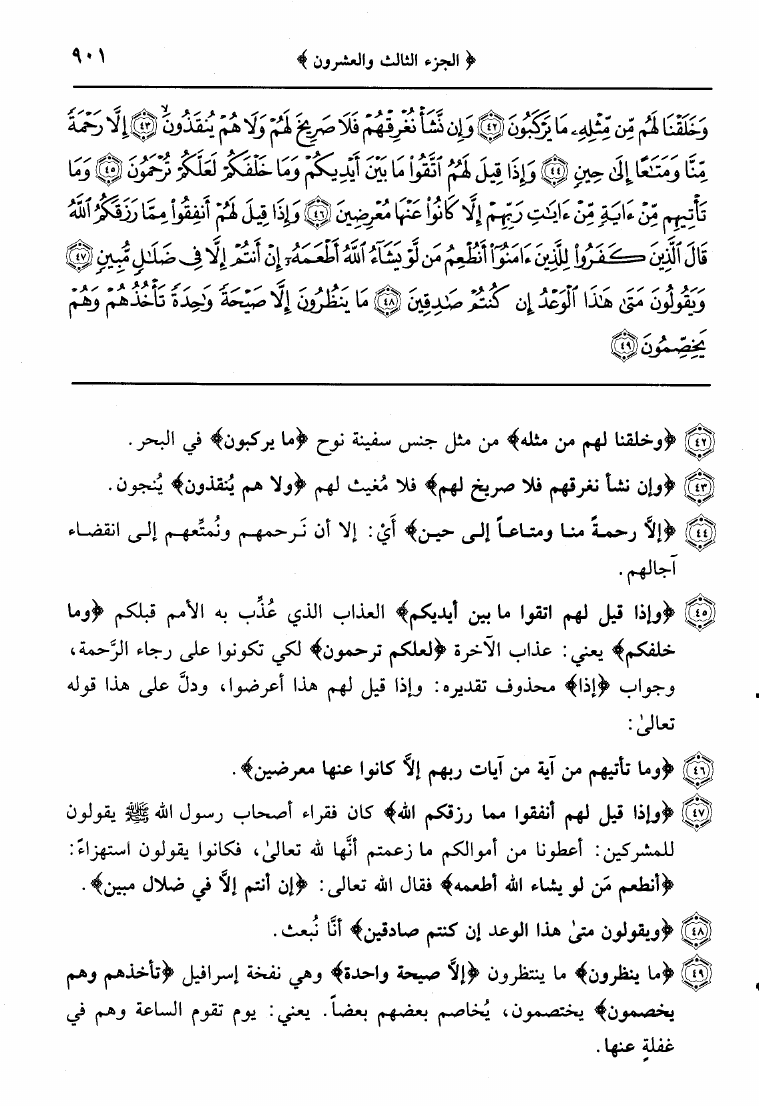 ﴿ الجزء الثالث والعشرون ﴾ ٩٠١
وَخَلَقْنَا لَهُم مِّن مِّثْلِهِۦ مَا يَرْكَبُونَ ﴿٤٢﴾ وَإِن نَّشَأْ نُغْرِقْهُمْ فَلَا صَرِيخَ لَهُمْ وَلَا هُمْ يُنقَذُونَ ﴿٤٣﴾ إِلَّا رَحْمَةً
مِّنَّا وَمَتَـٰعًا إِلَىٰ حِينٍ ﴿٤٤﴾ وَإِذَا قِيلَ لَهُمُ ٱتَّقُوا۟ مَا بَيْنَ أَيْدِيكُمْ وَمَا خَلْفَكُمْ لَعَلَّكُمْ تُرْحَمُونَ ﴿٤٥﴾ وَمَا
تَأْتِيهِم مِّنْ ءَايَةٍ مِّنْ ءَايَـٰتِ رَبِّهِمْ إِلَّا كَانُوا۟ عَنْهَا مُعْرِضِينَ ﴿٤٦﴾ وَإِذَا قِيلَ لَهُمْ أَنفِقُوا۟ مِمَّا رَزَقَكُمُ ٱللَّهُ
قَالَ ٱلَّذِينَ كَفَرُوا۟ لِلَّذِينَ ءَامَنُوٓا۟ أَنُطْعِمُ مَن لَّوْ يَشَآءُ ٱللَّهُ أَطْعَمَهُۥٓ إِنْ أَنتُمْ إِلَّا فِى ضَلَـٰلٍ مُّبِينٍ ﴿٤٧﴾
وَيَقُولُونَ مَتَىٰ هَـٰذَا ٱلْوَعْدُ إِن كُنتُمْ صَـٰدِقِينَ ﴿٤٨﴾ مَا يَنظُرُونَ إِلَّا صَيْحَةً وَٰحِدَةً تَأْخُذُهُمْ وَهُمْ
يَخِصِّمُونَ ﴿٤٩﴾
٤٢ ﴿وخلقنا لهم من مثله﴾ من مثل جنس سفينة نوح ﴿ما يركبون﴾ في البحر.
٤٣ ﴿وإن نشأ نغرقهم فلا صريخ لهم﴾ فلا مُغيث لهم ﴿ولا هم يُنقذون﴾ يُنجون.
٤٤ ﴿إلَّا رحمةً منا ومتاعاً إلى حين﴾ أيْ: إلا أن نَرحمهم ونُمتِّعهم إلى انقضاء
آجالهم.
٤٥ ﴿وإذا قيل لهم اتقوا ما بين أيديكم﴾ العذاب الذي عُذِّب به الأمم قبلكم ﴿وما
خلفكم﴾ يعني: عذاب الآخرة ﴿لعلكم ترحمون﴾ لكي تكونوا على رجاء الرَّحمة،
وجواب ﴿إذا﴾ محذوف تقديره: وإذا قيل لهم هذا أعرضوا، ودلَّ على هذا قوله
تعالىٰ:
٤٦ ﴿وما تأتيهم من آية من آيات ربهم إلاَّ كانوا عنها معرضين﴾.
٤٧ ﴿وإذا قيل لهم أنفقوا مما رزقكم الله﴾ كان فقراء أصحاب رسول الله ﷺ يقولون
للمشركين: أعطونا من أموالكم ما زعمتم أنَّها لله تعالىٰ، فكانوا يقولون استهزاءً:
﴿أنطعم مَن لو يشاء الله أطعمه﴾ فقال الله تعالى: ﴿إن أنتم إلاَّ في ضلال مبين﴾.
٤٨ ﴿ويقولون متىٰ هذا الوعد إن كنتم صادقين﴾ أنَّا نُبعث.
٤٩ ﴿ما ينظرون﴾ ما ينتظرون ﴿إلاَّ صيحة واحدة﴾ وهي نفخة إسرافيل ﴿تأخذهم وهم
يخصمون﴾ يختصمون، يُخاصم بعضهم بعضاً. يعني: يوم تقوم الساعة وهم في
غفلةٍ عنها.